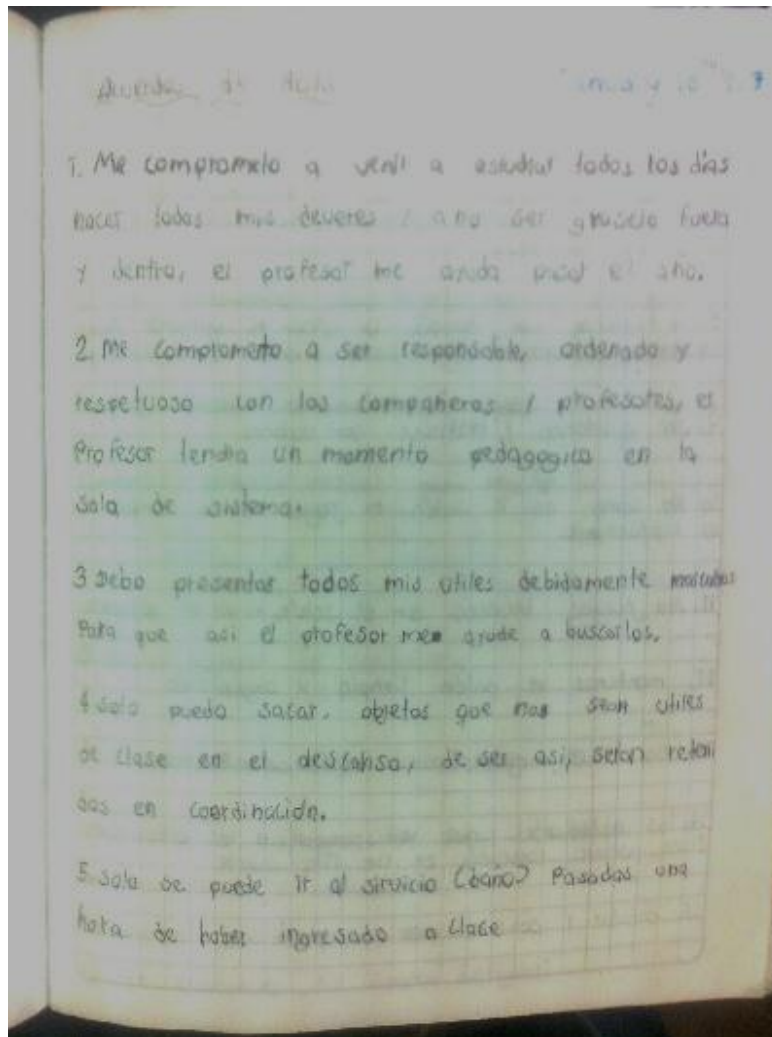 Acuerdos de Aula
1. Me comprometo a venir a estudiar todos los días
hacer todos mis deveres y a no ser grosero fuera
y dentro, el profesor me ayuda pasar el año.
2. Me comprometo a ser responsable, ordenado y
respetuoso con los compañeros y profesores, el
Profesor tendra un momento pedagogico en la
Sala de sistemas
3 Debo presentar todos mis utiles debidamente marcados
Para que asi el profesor me ayude a buscarlos.
4 Solo puedo sacar, objetos que nos sean utiles
de clase en el descanso, de ser asi, seran reteni
dos en coordinación.
5 Solo se puede ir al sirvicio (baño) Pasadas una
hora de haber ingresado a clase